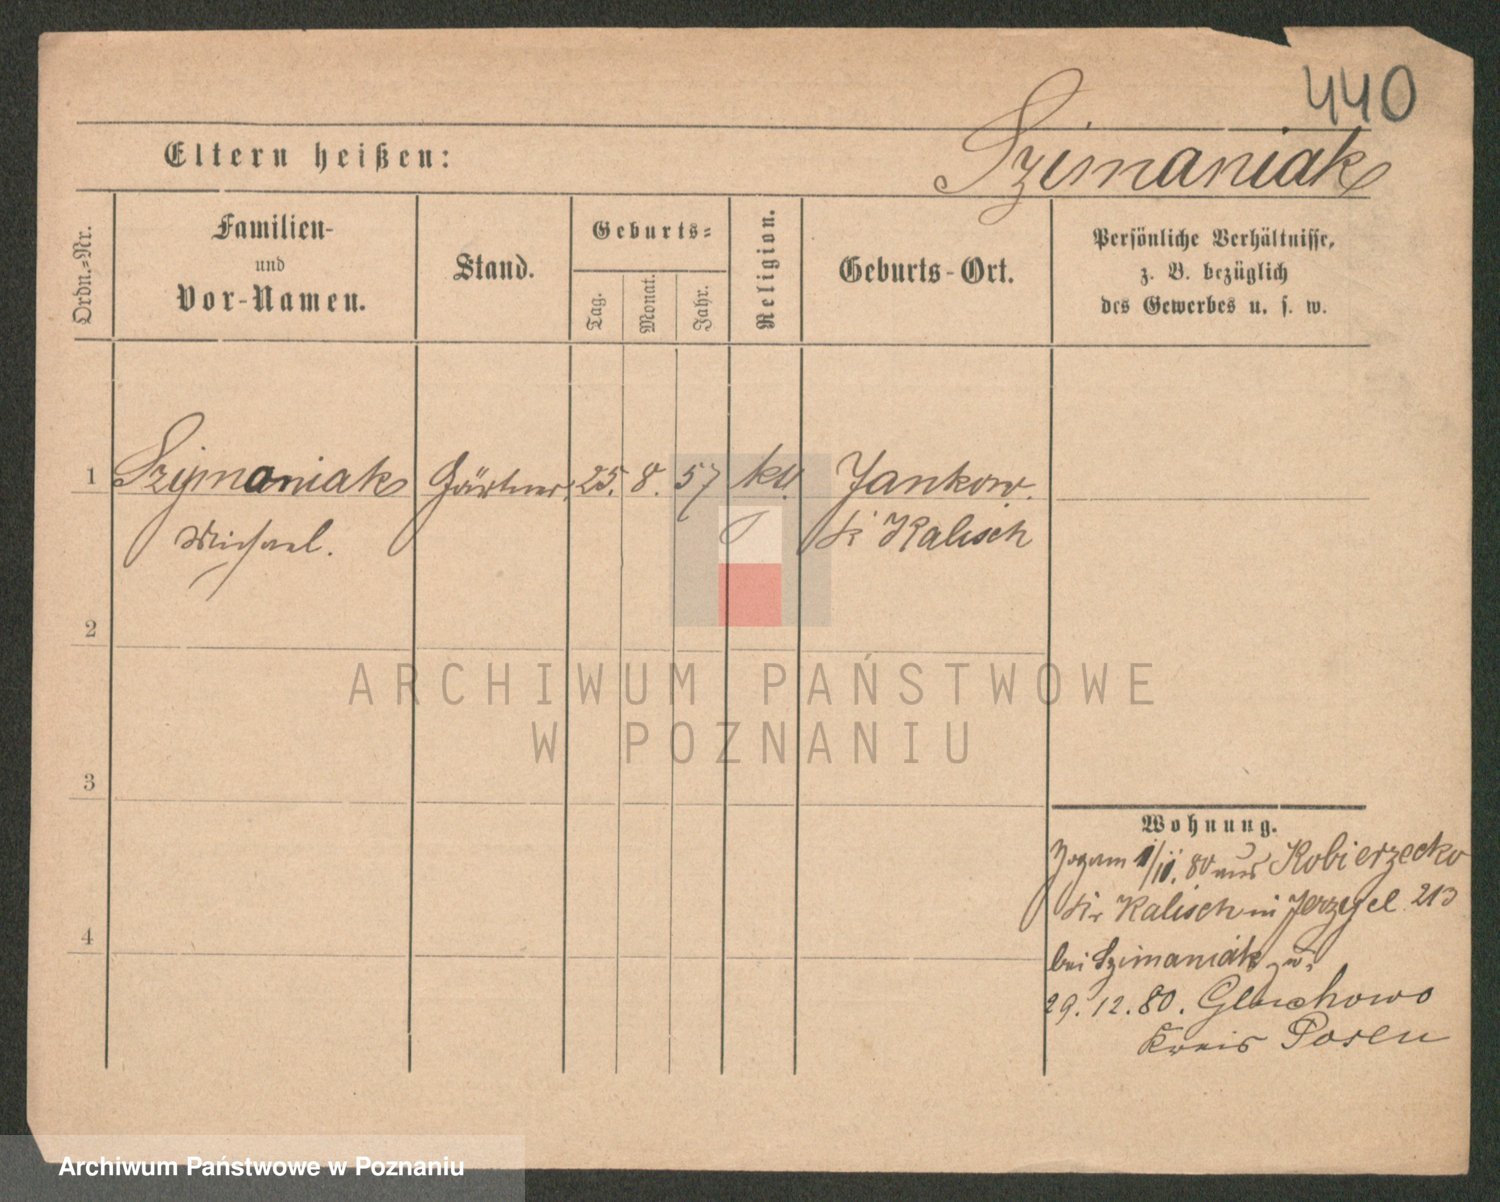 440
Szimaniak
Eltern heißen:
Ordn.=Nr.
Familien-
und
Vor-Namen.
Stand.
Geburts=
Tag.
Monat.
Jahr.
Religion.
Geburts-Ort.
Persönliche Verhältnisse,
z. B. bezüglich
des Gewerbes u. s. w.
1
Szymaniak
Michael.
Gärtner,
25. 8. 57
Jankow.
Kr Kalisch
2
3
4
Wohnung.
Zogam 1/11. 80 aus Kobierzecko
Kr Kalisch in Jerzyce 213
bei Szimaniak
29. 12. 80. Gluchowo
Kreis Posen
ARCHIWUM PAŃSTWOWE
W POZNANIU
Archiwum Państwowe w Poznaniu